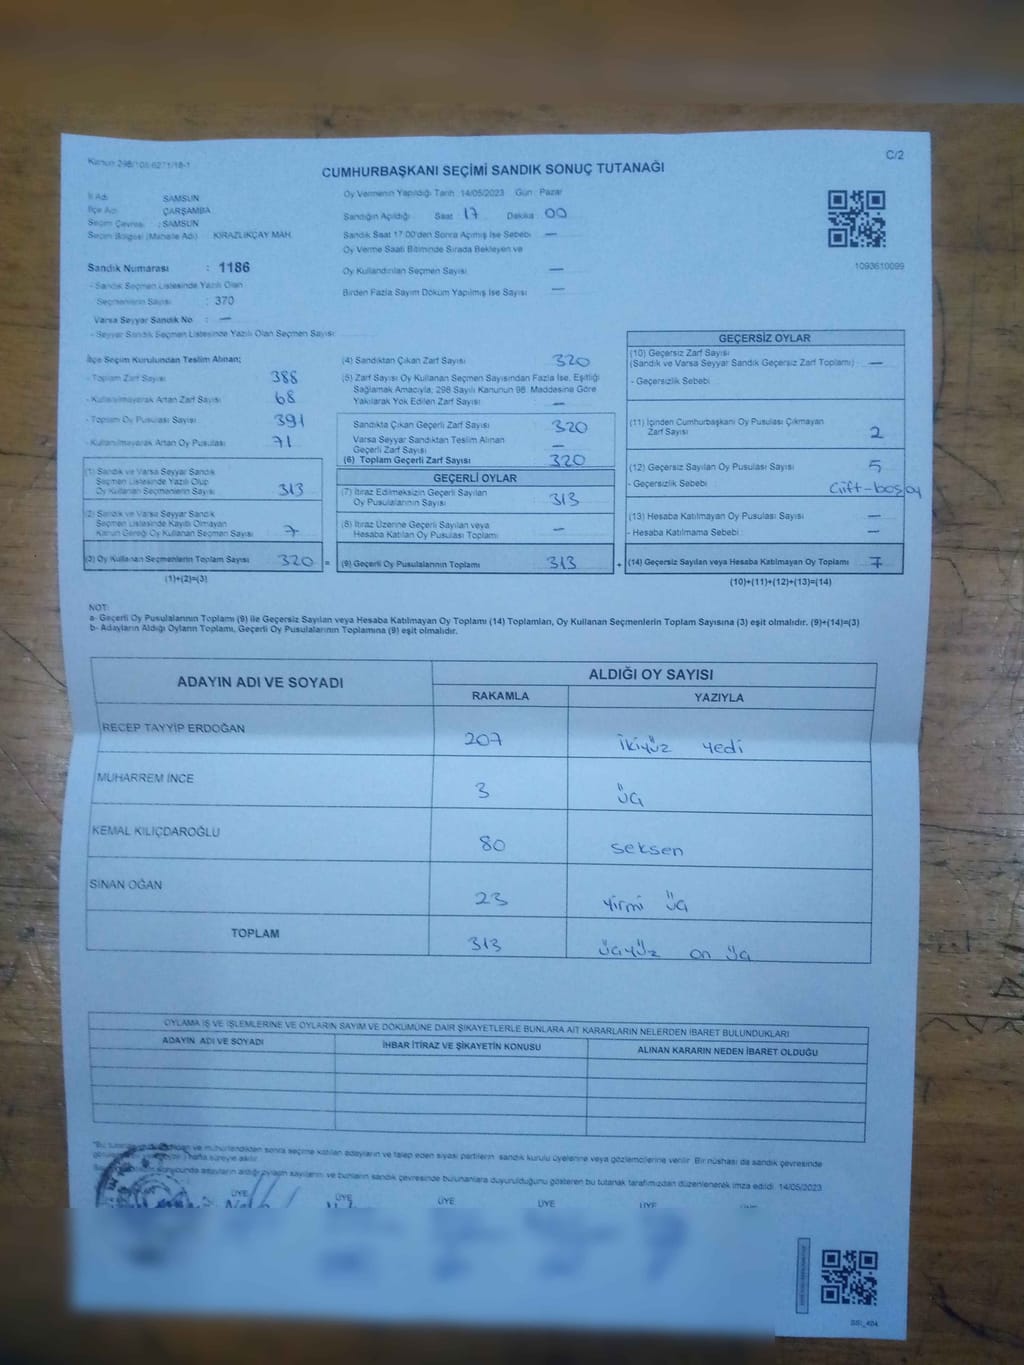 Kanun 298/105-6271/18-1
C/2
CUMHURBAŞKANI SEÇİMİ SANDIK SONUÇ TUTANAĞI
İl Adı : SAMSUN
İlçe Adı : ÇARŞAMBA
Seçim Çevresi : SAMSUN
Seçim Bölgesi (Mahalle Adı) : KİRAZLIKÇAY MAH.
Oy Vermenin Yapıldığı Tarih :14/05/2023 Gün : Pazar
Sandığın Açıldığı Saat : 17 Dakika : 00
Sandık Saat 17:00'den Sonra Açılmış İse Sebebi : —
Oy Verme Saati Bitiminde Sırada Bekleyen ve
Oy Kullandırılan Seçmen Sayısı : —
Birden Fazla Sayım Döküm Yapılmış İse Sayısı : —
1093610099
Sandık Numarası : 1186
- Sandık Seçmen Listesinde Yazılı Olan
Seçmenlerin Sayısı : 370
Varsa Seyyar Sandık No : —
- Seyyar Sandık Seçmen Listesinde Yazılı Olan Seçmen Sayısı:
İlçe Seçim Kurulundan Teslim Alınan;
- Toplam Zarf Sayısı : 388
- Kullanılmayarak Artan Zarf Sayısı : 68
- Toplam Oy Pusulası Sayısı : 391
- Kullanılmayarak Artan Oy Pusulası : 71
(1) Sandık ve Varsa Seyyar Sandık
Seçmen Listesinde Yazılı Olup
Oy Kullanan Seçmenlerin Sayısı : 313
(2) Sandık ve Varsa Seyyar Sandık
Seçmen Listesinde Kayıtlı Olmayan
Kanun Gereği Oy Kullanan Seçmen Sayısı : 7
(3) Oy Kullanan Seçmenlerin Toplam Sayısı : 320 =
(1)+(2)=(3)
(4) Sandıktan Çıkan Zarf Sayısı : 320
(5) Zarf Sayısı Oy Kullanan Seçmen Sayısından Fazla İse, Eşitliği
Sağlamak Amacıyla; 298 Sayılı Kanunun 98. Maddesine Göre
Yakılarak Yok Edilen Zarf Sayısı : —
Sandıkta Çıkan Geçerli Zarf Sayısı : 320
Varsa Seyyar Sandıktan Teslim Alınan
Geçerli Zarf Sayısı : —
(6) Toplam Geçerli Zarf Sayısı : 320
GEÇERLİ OYLAR
(7) İtiraz Edilmeksizin Geçerli Sayılan
Oy Pusulalarının Sayısı : 313
(8) İtiraz Üzerine Geçerli Sayılan veya
Hesaba Katılan Oy Pusulası Toplamı : —
(9) Geçerli Oy Pusulalarının Toplamı : 313 +
GEÇERSİZ OYLAR
(10) Geçersiz Zarf Sayısı
(Sandık ve Varsa Seyyar Sandık Geçersiz Zarf Toplamı) : —
- Geçersizlik Sebebi :
(11) İçinden Cumhurbaşkanı Oy Pusulası Çıkmayan
Zarf Sayısı : 2
(12) Geçersiz Sayılan Oy Pusulası Sayısı : 5
- Geçersizlik Sebebi : Çift-boş oy
(13) Hesaba Katılmayan Oy Pusulası Sayısı : —
- Hesaba Katılmama Sebebi : —
(14) Geçersiz Sayılan veya Hesaba Katılmayan Oy Toplamı : 7
(10)+(11)+(12)+(13)=(14)
NOT:
a- Geçerli Oy Pusulalarının Toplamı (9) ile Geçersiz Sayılan veya Hesaba Katılmayan Oy Toplamı (14) Toplamları, Oy Kullanan Seçmenlerin Toplam Sayısına (3) eşit olmalıdır. (9)+(14)=(3)
b- Adayların Aldığı Oyların Toplamı, Geçerli Oy Pusulalarının Toplamına (9) eşit olmalıdır.
ADAYIN ADI VE SOYADI ALDIĞI OY SAYISI
RAKAMLA YAZIYLA
RECEP TAYYİP ERDOĞAN 207 ikiyüz yedi
MUHARREM İNCE 3 üç
KEMAL KILIÇDAROĞLU 80 seksen
SİNAN OĞAN 23 yirmi üç
TOPLAM 313 üçyüz on üç
OYLAMA İŞ VE İŞLEMLERİNE VE OYLARIN SAYIM VE DÖKÜMÜNE DAİR ŞİKAYETLERLE BUNLARA AİT KARARLARIN NELERDEN İBARET BULUNDUKLARI
ADAYIN ADI VE SOYADI İHBAR İTİRAZ VE ŞİKAYETİN KONUSU ALINAN KARARIN NEDEN İBARET OLDUĞU
ve mühürlendikten sonra seçime katılan adayların ve talep eden siyasi partilerin sandık kurulu üyelerine veya gözlemcilerine verilir. Bir nüshası da sandık çevresinde
hafta süreyle asılır.
sonucunda adayların aldığı oyların sayılarını ve bunların sandık çevresinde bulunanlara duyurulduğunu gösteren bu tutanak tarafımızdan düzenlenerek imza edildi. 14/05/2023
ÜYE ÜYE ÜYE ÜYE ÜYE